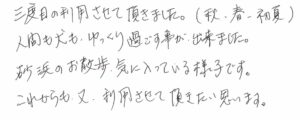 三度目の利用させて頂きました。(秋、春、初夏)
人間も犬も、ゆっくり過ごす事が、出来ました。
砂浜のお散歩、気に入っている様子です。
これからも、又、利用させて頂きたい思います。